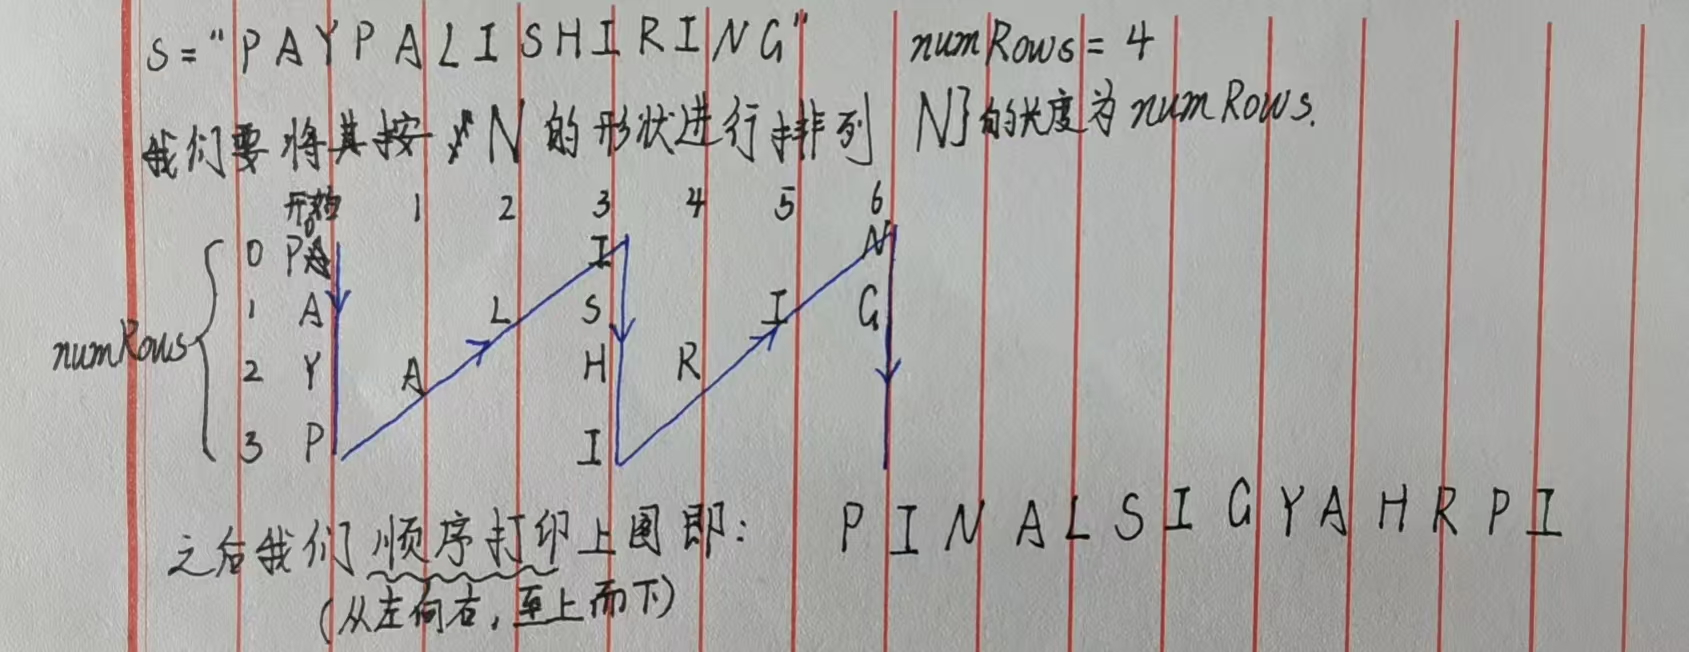 s="PAYPALISHIRING" numRows=4
我们要将其按 N 的形状进行排列 N的长度为numRows.
开始 1 2 3 4 5 6
0 P I N
1 A L S I G
numRows
2 Y A H R
3 P I
之后我们顺序打印上图即: PINALSIGYAHRPI
(从左向右,至上而下)